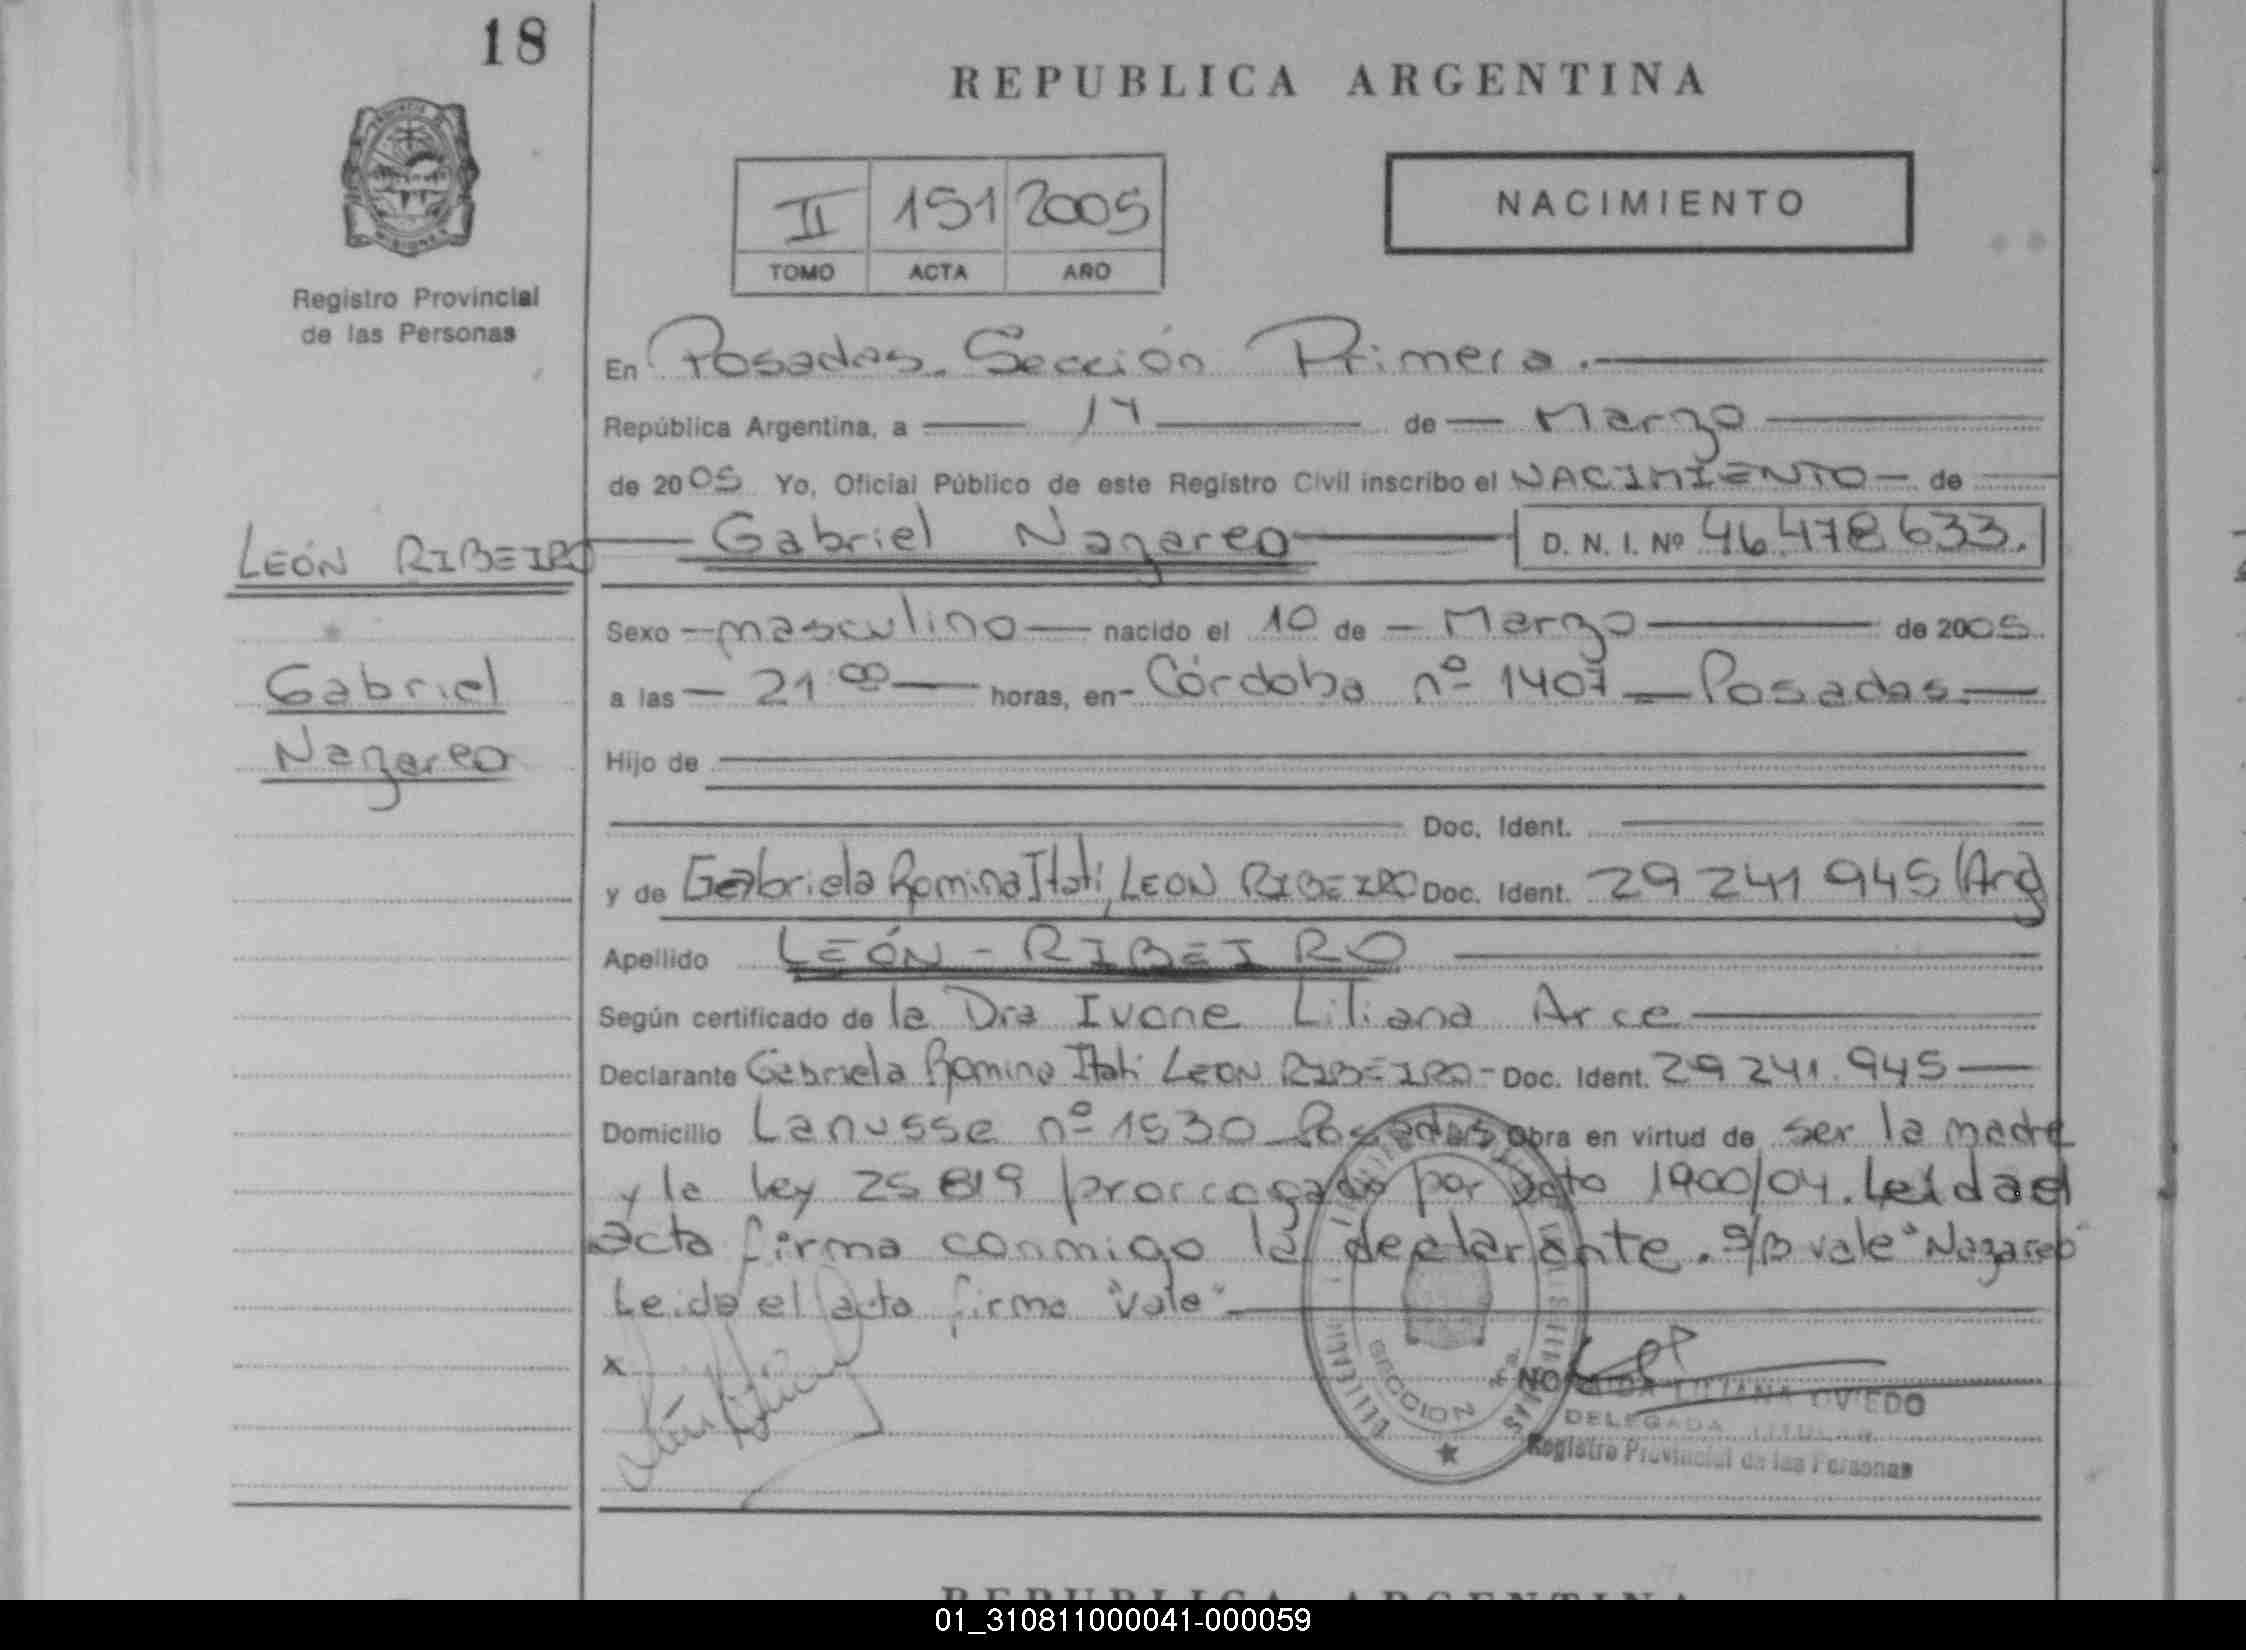 18
REPUBLICA ARGENTINA
II 151 2005
TOMO ACTA AÑO
NACIMIENTO
MISIONES
Registro Provincial
de las Personas
En Posadas. Sección Primera.
República Argentina, a 14 de Marzo
de 2005 Yo, Oficial Público de este Registro Civil inscribo el NACIMIENTO de
LEÓN RIBEIRO
Gabriel
Nazareo
Gabriel Nazareo D. N. I. Nº 46.478633.
Sexo masculino nacido el 10 de Marzo de 2005
a las 21 00 horas, en Córdoba nº 1407 Posadas
Hijo de
Doc. Ident.
y de Gabriela Romina Itati, LEON RIBEIRO Doc. Ident. 29 241 945 (Arg
Apellido LEÓN - RIBEIRO
Según certificado de la Dra Ivone Liliana Arce
Declarante Gabriela Romina Itati LEON RIBEIRO - Doc. Ident. 29 241.945
Domicilio Lanusse nº 1530 Posadas Obra en virtud de ser la madre
y la ley 25 819 prorrogado por Dcto 1900/04. Leida el
acta firma conmigo la declarante. S/B vale "Nazareo"
Leida el acta firma "vale"
x
SECCION 1ra.
LILIANA OVIEDO
DELEGADA TITULAR
Registro Provincial de las Personas
REPUBLICA ARGENTINA
01_310811000041-000059